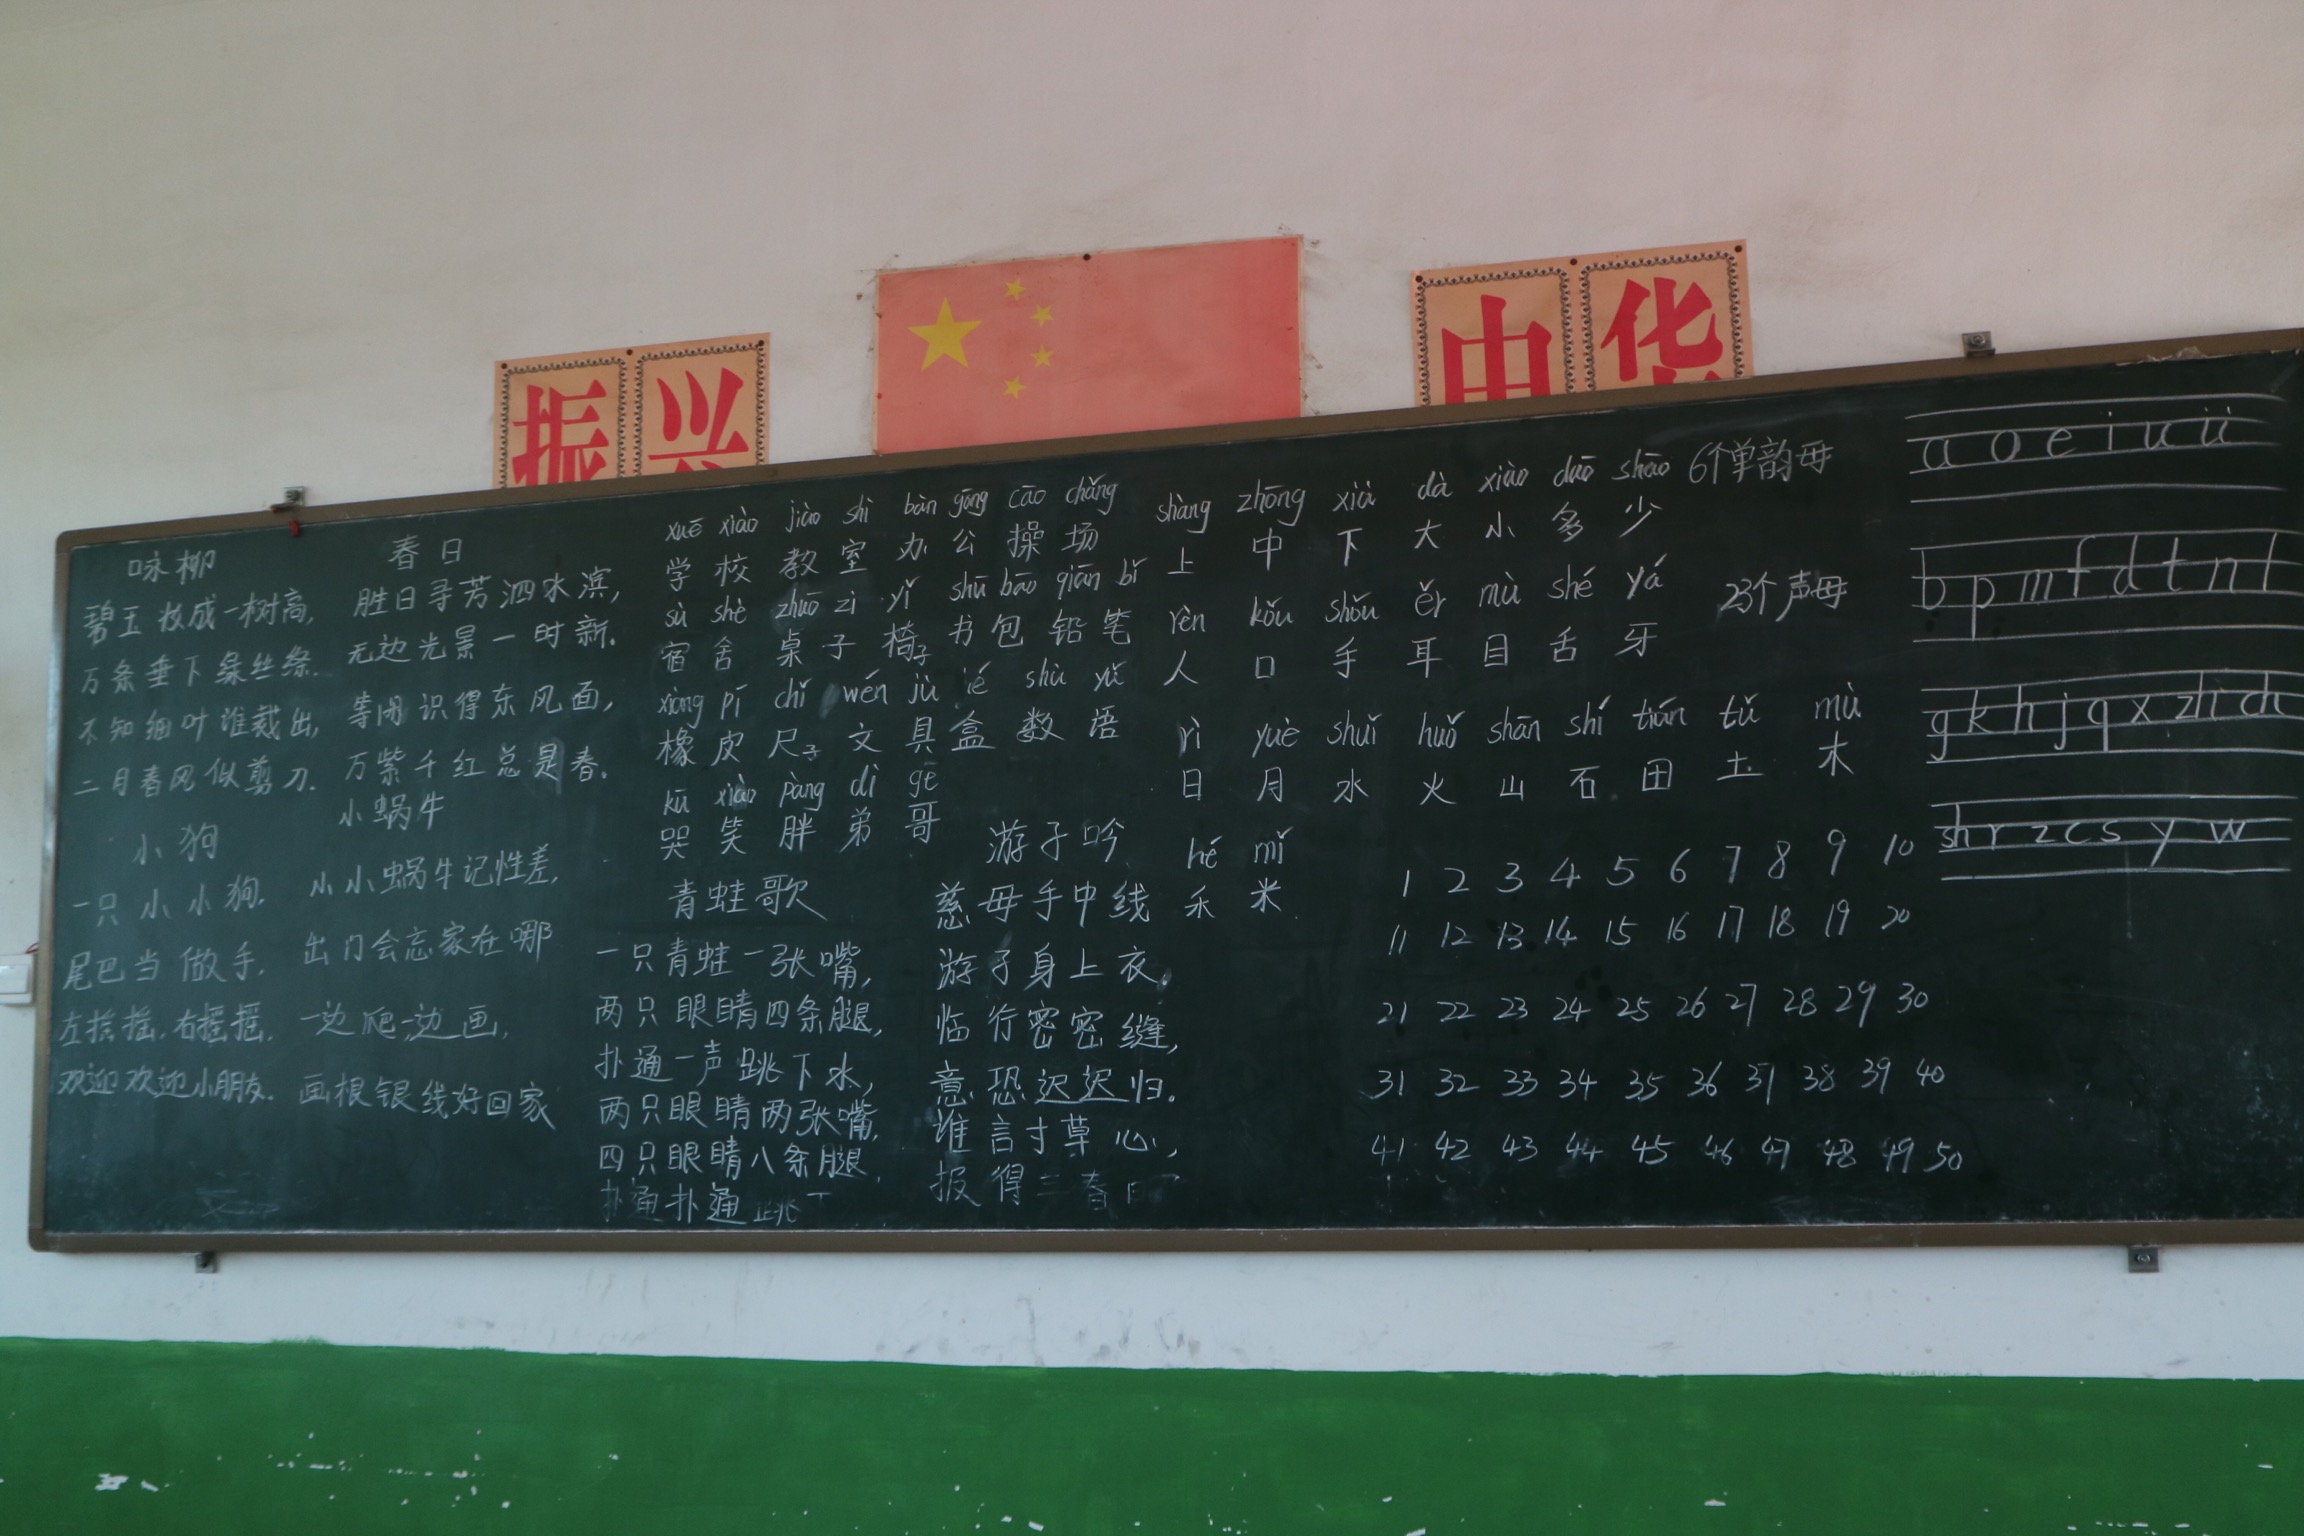 振兴
中华
咏柳
碧玉 妆成一树高,
万条垂下绿丝绦.
不知细叶谁裁出,
二月春风似剪刀.
小狗
一只小小狗.
尾巴当做手.
左摇摇.右摇摇.
欢迎欢迎小朋友.
春日
胜日寻芳泗水滨,
无边光景一时新.
等闲识得东风面,
万紫千红总是春.
小蜗牛
小小蜗牛记性差,
出门会忘家在哪
一边爬一边画,
画根银线好回家
xuē xiào jiào shì bàn gōng cāo chǎng
学校 教室 办公 操场
sù shè zhuō zi yǐ shū bāo qiān bǐ
宿舍 桌子 椅子 书包 铅笔
xiàng pí chǐ wén jù hé shù yǔ
橡皮 尺子 文具盒 数语
kū xiào pàng dì gē
哭 笑 胖 弟 哥
青蛙歌
一只青蛙一张嘴,
两只眼睛四条腿,
扑通一声跳下水,
两只眼睛两张嘴,
四只眼睛八条腿,
扑通扑通跳下
游子吟
慈母手中线
游子身上衣.
临行密密缝,
意恐迟迟归.
谁言寸草心,
报得三春日
shàng zhōng xià dà xiào duō shǎo
上 中 下 大 小 多 少
rèn kǒu shǒu ěr mù shé yá
人 口 手 耳 目 舌 牙
rì yuè shuǐ huǒ shān shí tián tǔ mù
日 月 水 火 山 石 田 土 木
hé mǐ
禾 米
1 2 3 4 5 6 7 8 9 10
11 12 13 14 15 16 17 18 19 20
21 22 23 24 25 26 27 28 29 30
31 32 33 34 35 36 37 38 39 40
41 42 43 44 45 46 47 48 49 50
6个单韵母
a o e i u ü
23个声母
b p m f d t n l
g k h j q x zh ch
sh r z c s y w